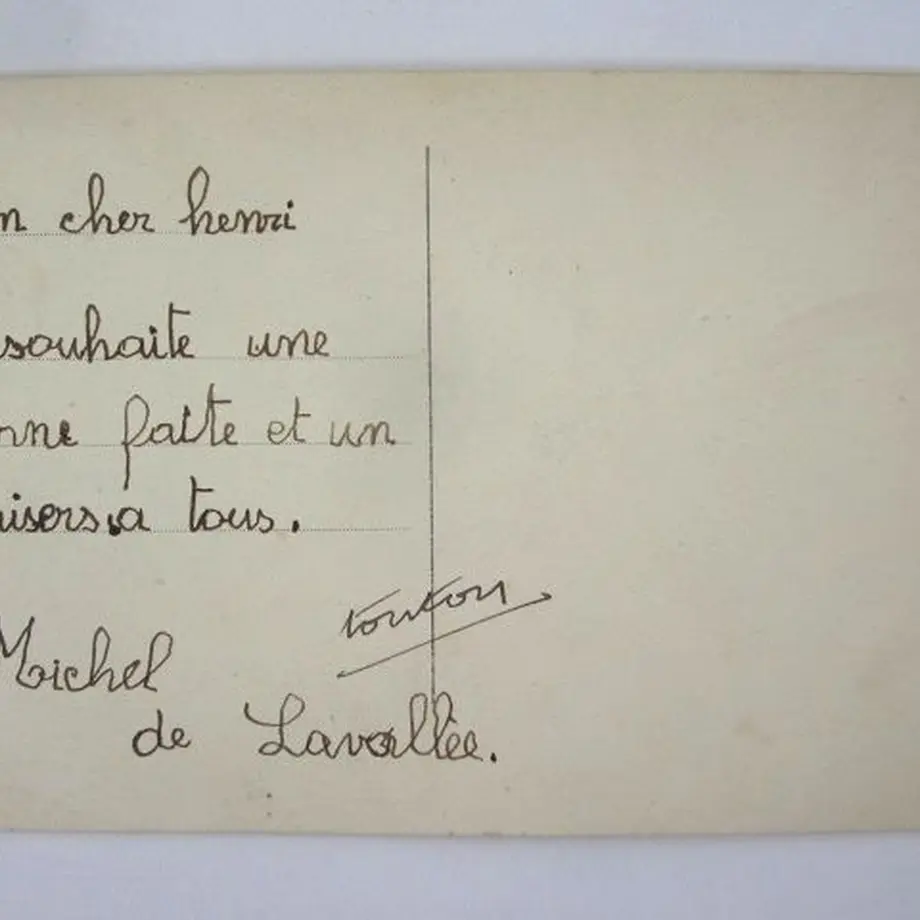 n cher henri
souhaite une
nne faite et un
aisers a tous.
toufou
Michel
de Lavallée.